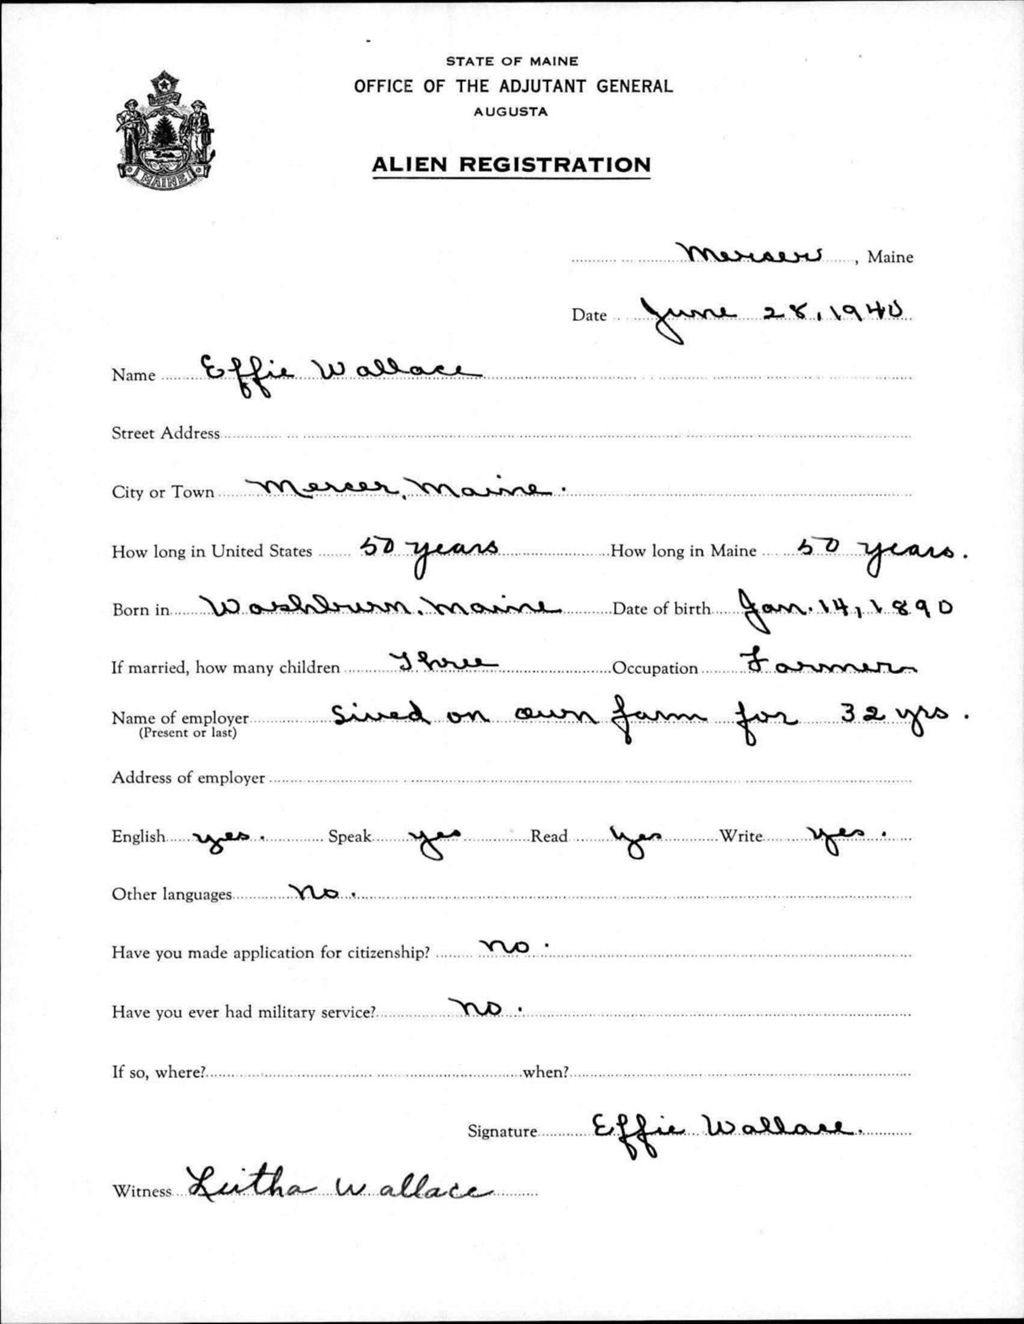 STATE OF MAINE
OFFICE OF THE ADJUTANT GENERAL
AUGUSTA
ALIEN REGISTRATION
MAINE
Mercer, Maine
Date June 28, 1940
Name Effie Wallace
Street Address
City or Town Mercer, Maine.
How long in United States 50 years How long in Maine 50 years.
Born in Washburn, Maine Date of birth Jan. 14, 1890
If married, how many children Three Occupation Farmer
Name of employer Lived on own farm for 32 yrs.
(Present or last)
Address of employer
English yes. Speak yes Read yes Write yes.
Other languages no.
Have you made application for citizenship? no.
Have you ever had military service? no.
If so, where? when?
Signature Effie Wallace.
Witness Leitha Wallace